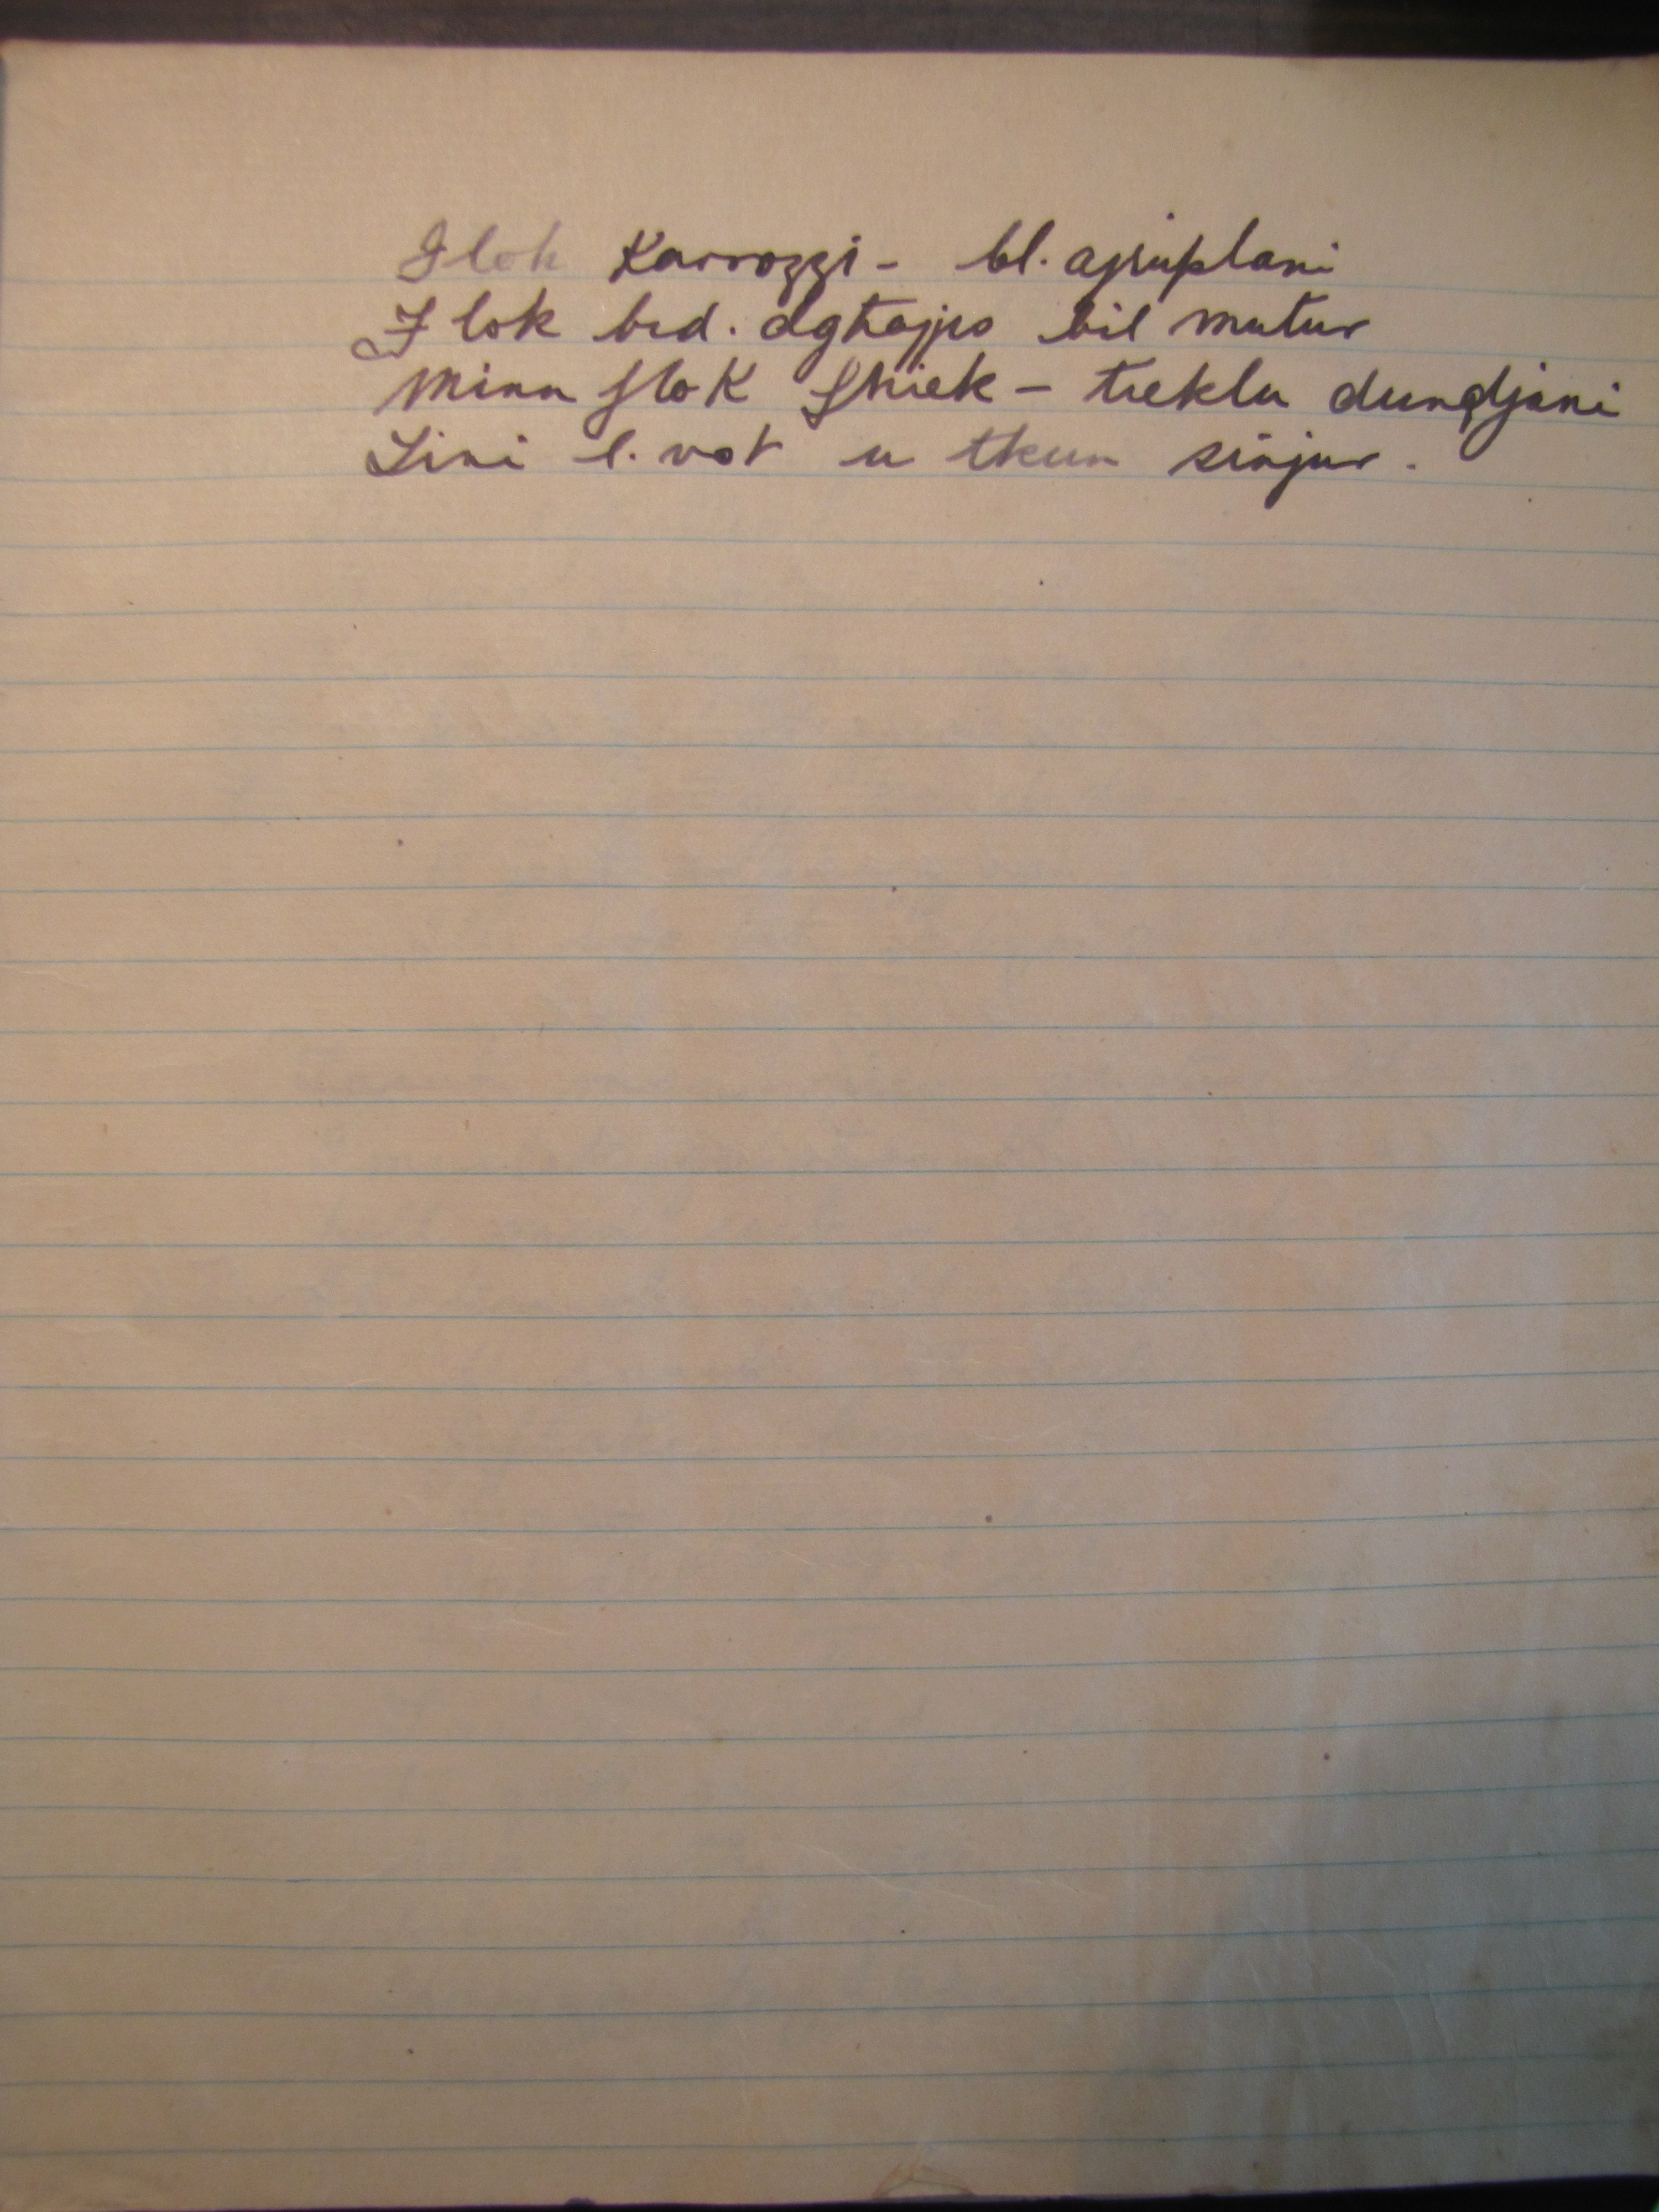 Flok Karrozzi - bl. ajruplani
Flok brd. dghajjes bil mutur
Minn flok Shiek - tieklu dundjani
Zini l. vot u tkun sinjur.